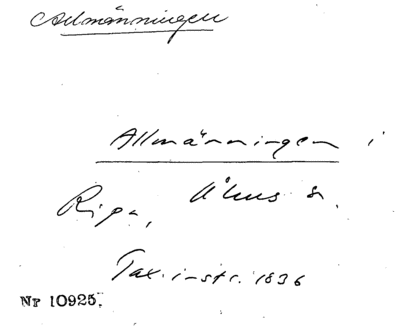 Allmänningen
Allmänningen i
Ripa, Åhus sn.
Tax.instr. 1836
Nr 10925.